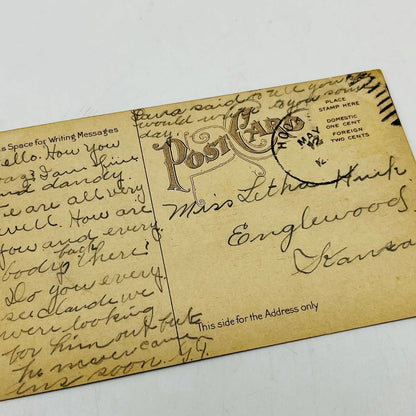 Laura said to tell you she
would write to you some
day.
s Space for Writing Messages
ello. How you
was? I am fine
and dandy.
We are all very
well. How are
you and every
body back there?
Do you every
see Claude we
were looking
for him out but
he never came
ans soon. G.T.
POST CARD
PLACE
STAMP HERE
DOMESTIC
ONE CENT
FOREIGN
TWO CENTS
HOO
MAY
Miss Letha Huck
Englewood
Kansa
This side for the Address only